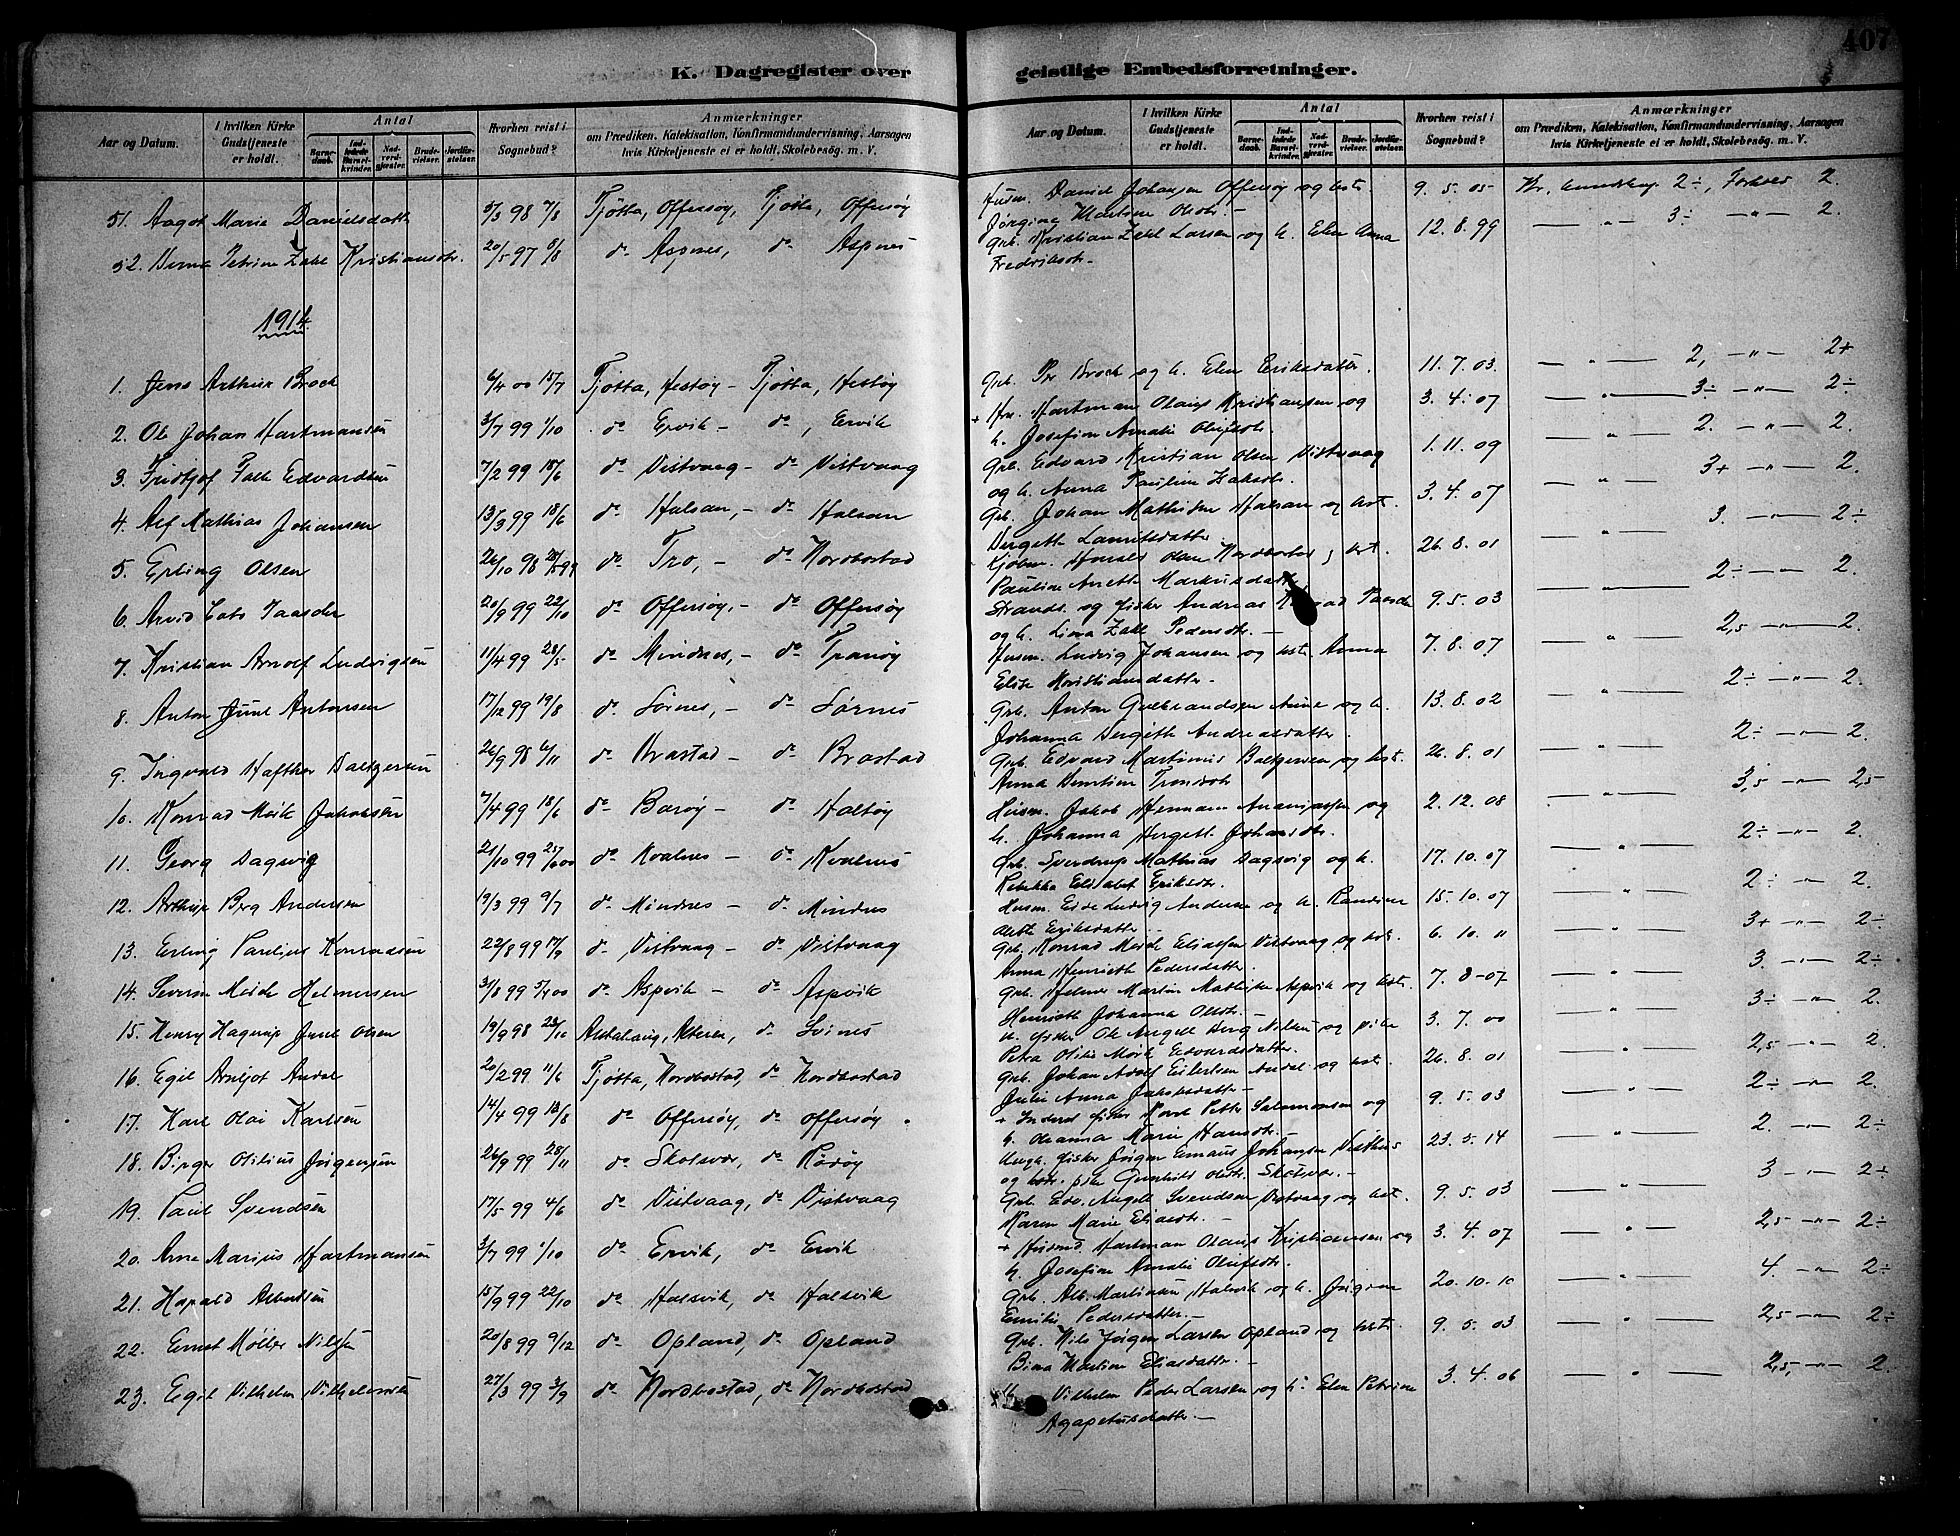 407
K. Dagregister over geistlige Embedsforretninger.
Aar og Datum. I hvilken Kirke Gudstjeneste er holdt. Antal Barnedaab. Indledede Barselkvinder. Nadverdgjester. Brudevielser. Jordfæstelser. Hvorhen reist i Sognebud? Anmærkninger om Prædiken, Katekisation, Konfirmandundervisning, Aarsagen hvis Kirketjeneste ei er holdt, Skolebesøg. m. V.
Aar og Datum. I hvilken Kirke Gudstjeneste er holdt. Antal Barnedaab. Indledede Barselkvinder. Nadverdgjester. Brudevielser. Jordfæstelser. Hvorhen reist i Sognebud? Anmærkninger om Prædiken, Katekisation, Konfirmandundervisning, Aarsagen hvis Kirketjeneste ei er holdt, Skolebesøg. m. V.
51. Aagot Marie Danielsdatter 5/3 98 7/8 Tjøtta, Offersøy, Tjøtta, Offersøy
52. Petrine Zahl Kristiansdtr. 20/5 97 8/8 do Aspnes, do Aspnes
1914
1. Jens Arthur Brock 6/4 00 15/7 Tjøtta, Hestøy - Tjøtta, Hestøy
2. Ole Johan Hartmansen 3/7 99 1/10 do Ervik - do, Ervik
3. Fridtjof Falk Edvardsen 7/2 99 18/6 do Vistvaag - do Vistvaag
4. Alf Mathias Johansen 13/3 99 18/6 do Halsan, - do Halsan
5. Erling Olsen 26/10 98 do Tro, - do Nordbostad
6. Arvid 20/9 99 22/10 do Offersøy, - do Offersøy
7. Kristian Arnolf Ludvigsen 11/4 99 28/5 do Mindnes, - do Tranøy
8. Anton Juul Antonsen 17/12 99 19/8 do Sørnes, - do Sørnes
9. Ingvald Hafthor Baltzersen 26/9 98 6/11 do Brastad - do Brastad
10. Konrad Meik Jakobsen 7/4 99 18/6 do Barøy - do Haltøy
11. Georg Dagsvig 21/10 99 do Kvalnes - do Kvalnes
12. Arthur Berg Andersen 19/3 99 9/7 do Mindnes - do Mindnes
13. Erling Paulius Konradsen 22/8 99 17/9 do Vistvaag - do Vistvaag
14. Severin Meide Helmersen 31/8 99 5/4 00 do Aspvik - do Aspvik
15. Henry Hagerup Juul Olsen 19/9 98 23/10 Alstahaug, Alteren, do Svines
16. Egil Arnljot Andal 20/2 99 11/6 Tjøtta, Nordbostad, do Nordbostad
17. Karl Olai Karlsen 14/4 99 13/8 do Offersøy, do Offersøy
18. Birger Otilius Jørgensen 26/9 99 28/11 do Skotsvær, do Rødøy
19. Paul Svendsen 17/5 99 4/6 do Vistvaag, do Vistvaag
20. Arne Marius Hartmansen 3/7 99 1/10 do Ervik, do Ervik
21. Harald Albertsen 15/9 99 22/10 do Halsvik, do Halsvik
22. Ernst Möller Nilsen 20/8 99 9/12 do Opland, do Opland
23. Egil Vilhelm Vilhelmsen 27/3 99 3/9 do Nordbostad, do Nordbostad
Husm. Daniel Johansen Offersøy og hst. 9. 5. 05 Kr. kundskap. 2÷, Forhold 2.
Jørgine Martine Olsdtr. -
Grb. Kristian Zahl Larsen og h. Elen Anna 12. 8. 99 — „ — 3÷ — „ — 2.
Fredriksdtr. -
Grb. Per Brock og h. Elen Eriksdatter. 11. 7. 03. — „ — 2, — „ — 2+
+ Hm. Hartman Olaus Kristiansen og 3. 4. 07 — „ — 3÷ — „ — 2÷
h. Josefine Amalie Olufsdtr.
Grb. Edvard Kristian Olsen Vistvaag 1. 11. 09 — „ — 2. — „ — 2.
og h. Anna Pauline
Grb. Johan Mathisen Halsan og hst. 3. 4. 07 — „ — 3+ — „ — 2.
Bergitte Lauritsdatter
Olsen Nordbostad, hst. 26. 8. 01 — „ — 3. — „ — 2÷
Pauline Anette Markusdatter
Strands. og fisker Andreas 9. 5. 03 — „ — 2÷ — „ — 2.
og h. Lina Zahl Pedersdtr. -
Husm. Ludvig Johansen og hst. Anna 7. 8. 07 — „ — 2,5 — „ — 2.
Elise Kristiansdatter -
Grb. Anton og h. 13. 8. 02 — „ — 2÷ — „ — 2.
Johanna Bergitte Andreasdatter.
Grb. Edvard Martinus Baltzersen og hst. 26. 8. 01 — „ — 2÷ — „ — 2.
Anna
Husm. Jakob Herman Ananiassen og 2. 12. 08 — „ — 3,5 — „ — 2,5
h. Johanna Bergitte Johansdtr.
Grb. Sverdrup Mathias Dagsvig og h. 17. 10. 07 — „ — 2÷ — „ — 2.
Rebekka Elisabet Eriksdtr.
Husm. Ludvig Andersen og h. Randine 15. 10. 07 — „ — 2÷ — „ — 2.
Eriksdatter -
Grb. Konrad Meide Eliassen Vistvaag og hst. 6. 10. 11 — „ — 3+ — „ — 2÷
Anna Henriette Pedersdatter.
Grb. Helmer Martin Mathisen Aspvik og hst. 7. 8-07 — „ — 3. — „ — 2÷
Henriette Johanna Olsdtr. -
u. fisker Ole Angell Berg Nilsen og pike 3. 7. 00 — „ — 3÷ — „ — 2.
Petra Otilie Mörk Edvardsdatter.
Grb. Johan Adolf Eilertsen Andal og hst. 26. 8. 01 — „ — 2,5 — „ — 2.
Julie Anna Jakobsdatter -
+ Inderst fisker Karl Petter Salamonsen og 9. 5. 03 — „ — 2÷ — „ — 2.
h. Oleanna Marie Hansdtr.
Ungk. fisker Jørgen Emaus Johansen 23. 5. 14 — „ — 2. — „ — 2÷
og pike Gunhild Olsdtr. Skotsvær. -
Grb. Edv. Angell Svendsen Vistvaag og hst. 9. 5. 03 — „ — 3 — „ — 2÷
Karen Marie Eliasdtr. -
+ Husmd. Hartman Olaus Kristiansen og 3. 4. 07 — „ — 2,5 — „ — 2÷
h. Josefine Amalie Olufsdtr.
Grb. Alb. Martinsen Halsvik og h. Jørgine 20. 10. 10 — „ — 4. — „ — 2÷
Emilie Pedersdatter. -
Grb. Nils Jørgen Larsen Opland og hst. 9. 5. 03 — „ — 2,5 — „ — 2÷
Bina Martine Eliasdatter. -
Vilhelm Peder Larsen og h. Elen Petrine 3. 4. 06 — „ — 2,5, — „ — 2.
Agapetusdatter. -